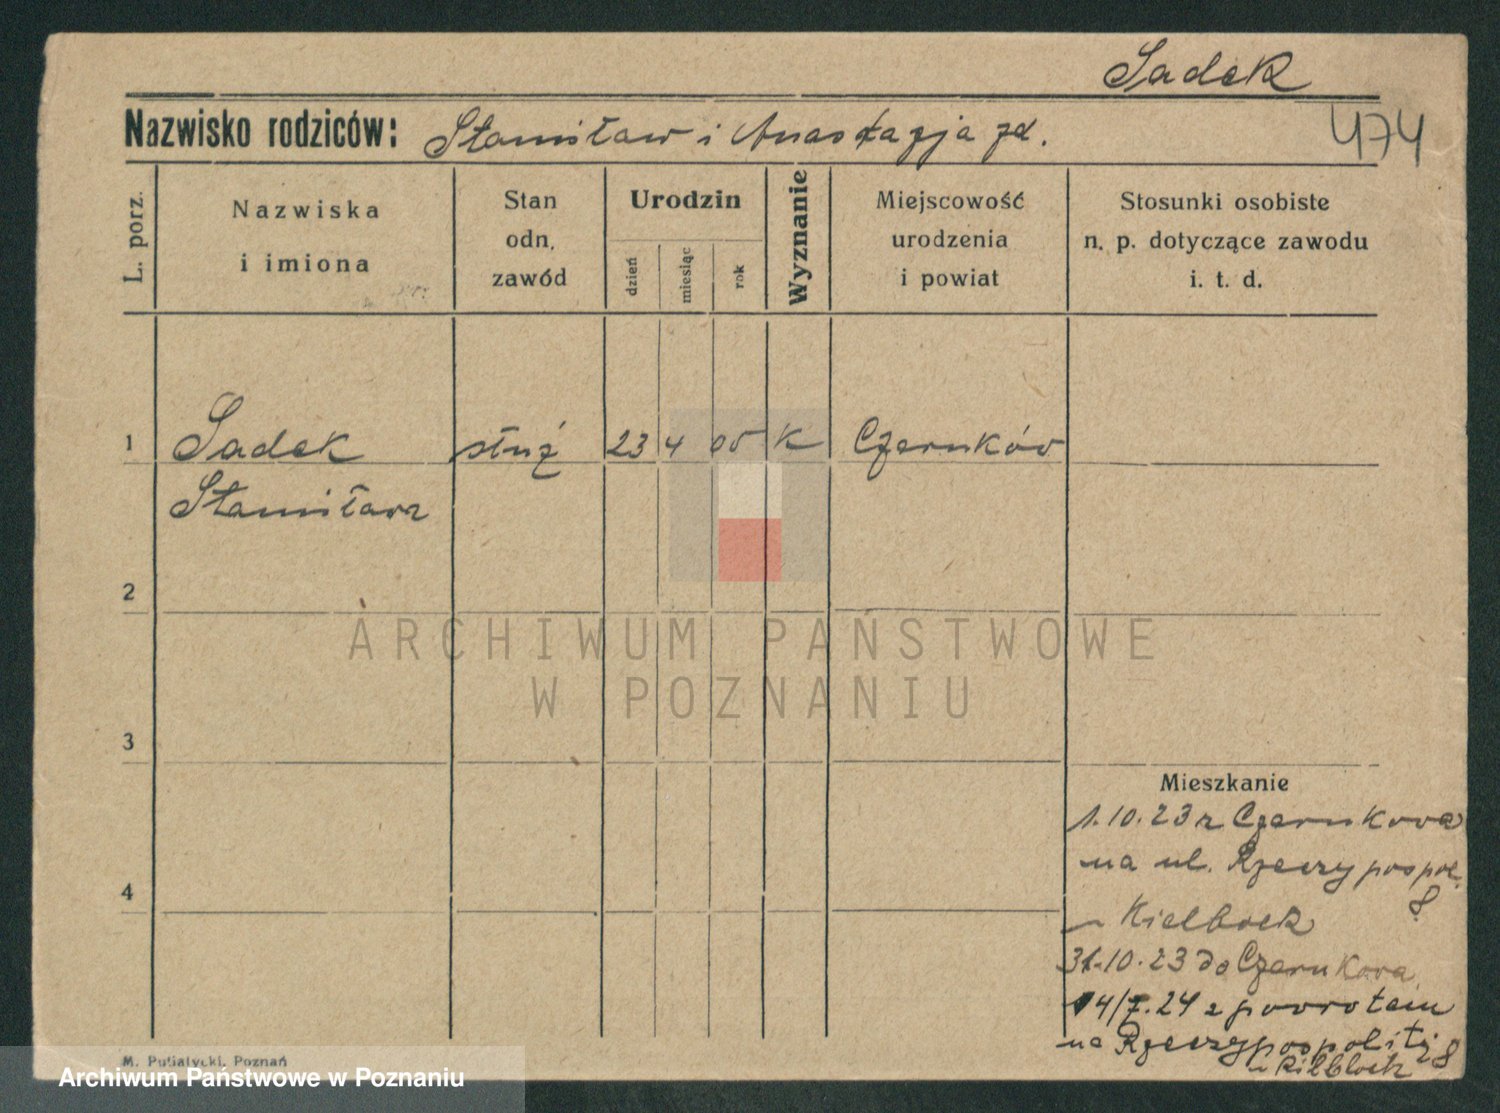 Sadek
Nazwisko rodziców: Stanisław i Anastazja zd.
474
L. porz.
Nazwiska
i imiona
Stan
odn.
zawód
Urodzin
dzień
miesiąc
rok
Wyznanie
Miejscowość
urodzenia
i powiat
Stosunki osobiste
n. p. dotyczące zawodu
i. t. d.
1 Sadek służ 23 4 05 K Czernków
Stanisława
2
3
4
ARCHIWUM PAŃSTWOWE
W POZNANIU
Mieszkanie
1.10.23 z Czernkowa
na ul. Rzeczypospol.
8
Kielbock
31.10.23 do Czernkowa
14/7.24 z powrotem
na Rzeczypospolitej 8
M. Putiatycki, Poznań
Archiwum Państwowe w Poznaniu